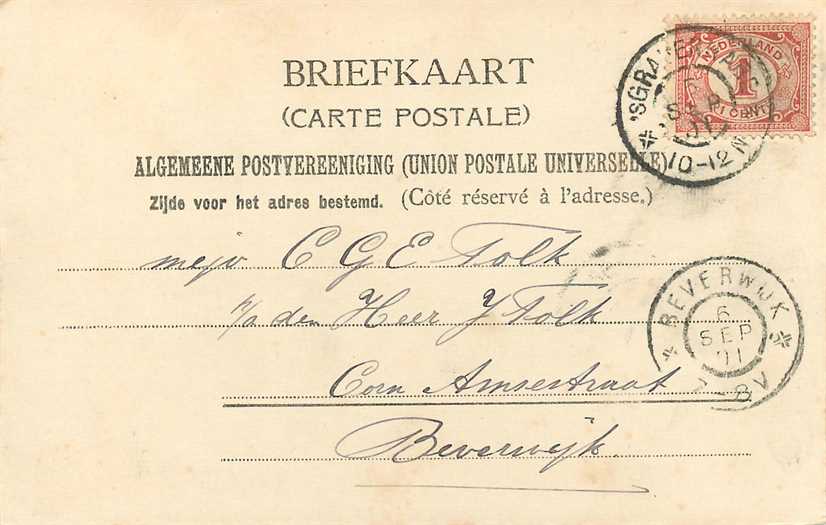 BRIEFKAART
(CARTE POSTALE)
ALGEMEENE POSTVEREENIGING (UNION POSTALE UNIVERSELLE)
Zijde voor het adres bestemd. (Côté réservé à l'adresse.)
NEDERLAND
1
CENT
'SGRAVENHAGE
SEP
01
10-12 N
mejv C G E Tolk
p/a den Heer J Tolk
Corn Amsestraat
Beverwijk
BEVERWIJK
6
SEP
01
-8V